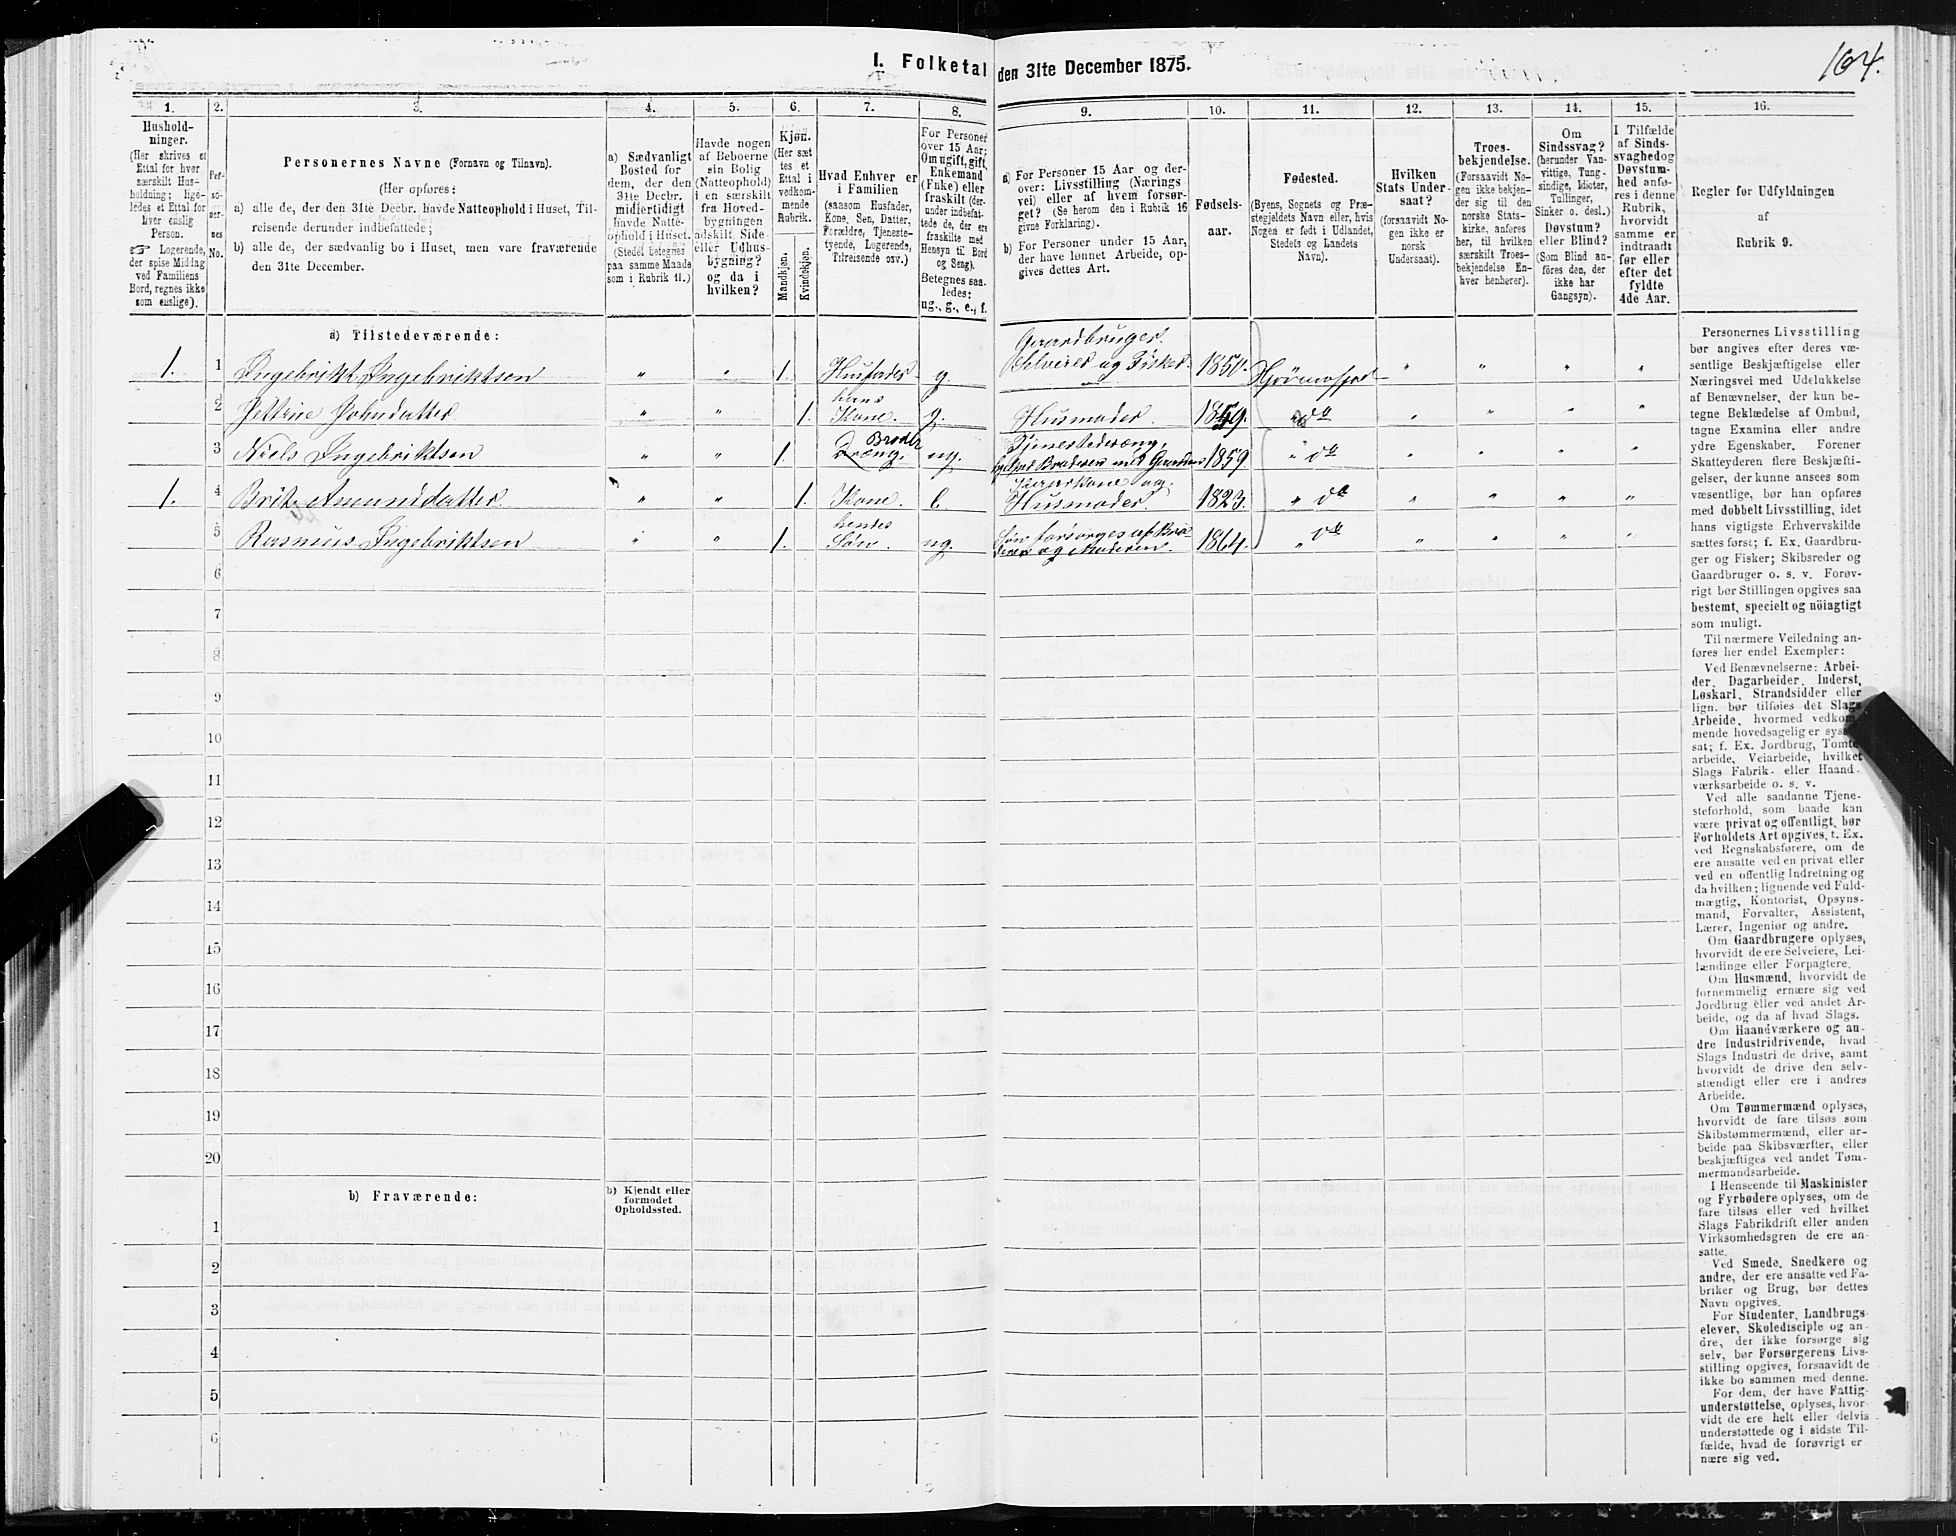 I. Folketal den 31te December 1875.
164.
1.
2.
3.
4.
5.
6.
7.
8.
9.
10.
11.
12.
13.
14.
15.
16.
Hushold-
ninger.
(Her skrives et
Ettal for hver
særskilt Hus-
holdning; lige-
ledes et Ettal for
hver enslig
Person.
☞ Logerende,
der spise Middag
ved Familiens
Bord, regnes ikke
som enslige).
Per-
so-
ner-
nes
No.
Personernes Navne (Fornavn og Tilnavn).
(Her opføres:
a) alle de, der den 31te Decbr. havde Natteophold i Huset, Til-
reisende derunder indbefattede;
b) alle de, der sædvanlig bo i Huset, men vare fraværende
den 31te December.
a) Sædvanligt
Bosted for
dem, der den
31te Decbr.
midlertidigt
havde Natte-
ophold i Huset.
(Stedet betegnes
paa samme Maade
som i Rubrik 11.)
Havde nogen
af Beboerne
sin Bolig
(Natteophold)
i en særskilt
fra Hoved-
bygningen
adskilt Side-
eller Udhus-
bygning?
og da i
hvilken?
Kjøn.
(Her sæt-
tes et
Ettal i
vedkom-
mende
Rubrik.
Mandkjøn.
Kvindekjøn.
Hvad Enhver er
i Familien
(saasom Husfader,
Kone, Søn, Datter,
Forældre, Tjeneste-
tyende, Logerende,
Tilreisende osv.)
For Personer
over 15 Aar;
Om ugift, gift,
Enkemand
(Enke) eller
fraskilt (der-
under indbefat-
tede de, der ere
fraskilte med
Hensyn til Bord
og Seng).
Betegnes saa-
ledes:
ug., g., e., f.
a) For Personer 15 Aar og der-
over: Livsstilling (Nærings
vei) eller af hvem forsør-
get? (Se herom den i Rubrik 16
givne Forklaring).
b) For Personer under 15 Aar,
der have lønnet Arbeide, op-
gives dettes Art.
Fødsels-
aar.
Fødested.
(Byens, Sognets og Præ-
stegjeldets Navn eller, hvis
Nogen er født i Udlandet,
Stedets og Landets
Navn).
Hvilken
Stats Under-
saat?
(forsaavidt No-
gen ikke er
norsk
Undersaat).
Troes-
bekjendelse.
(Forsaavidt No-
gen ikke bekjen-
der sig til den
norske Stats-
kirke, anføres
her, til hvilken
særskilt Troes-
bekjendelse En-
hver henhører).
Om
Sindssvag?
(herunder Van-
vittige, Tung-
sindige, Idioter,
Tullinger,
Sinker o. desl.)
Døvstum?
eller Blind?
(Som Blind an-
føres den, der
ikke har
Gangsyn).
I Tilfælde
af Sinds-
svaghed og
Døvstum-
hed anfø-
res i denne
Rubrik,
hvorvidt
samme er
indtraadt
før eller
efter det
fyldte
4de Aar.
Regler for Udfyldningen
af
Rubrik 9.
a) Tilstedeværende:
1. 1 Ingebrikt Ingebriktsen " " 1. Husfader g. Gaardbruger Selveier og Fisker 1850. " " " "
2 Johndatter " " 1. hans Kone. g. Husmoder. " do " " " "
3 Niels Ingebriktsen " " 1. Broder ug. 1859 " do " " " "
1. 4 Brit Amundsdatter " " 1. Kone. Husmoder. 1823. " do " " " "
5 Rasmus Ingebriktsen " " 1. hendes Søn. ug. Søn forsørges af Broderen og Moderen. 1864. " do " " " "
6
7
8
9
10
11
12
13
14
15
16
17
18
19
20
b) Fraværende:
b) Kjendt eller
formodet
Opholdssted.
1
2
3
4
5
6
Personernes Livsstilling
bør angives efter deres væ-
sentlige Beskjæftigelse eller
Næringsvei med Udelukkelse
af Benævnelser, der kun be-
tegne Beklædelse af Ombud,
tagne Examina eller andre
ydre Egenskaber. Forener
Skatteyderen flere Beskjæfti-
gelser, der kunne ansees som
væsentlige, bør han opføres
med dobbelt Livsstilling, idet
hans vigtigste Erhvervskilde
sættes først; f. Ex. Gaardbru-
ger og Fisker; Skibsreder og
Gaardbruger o. s. v. Forøv-
rigt bør Stillingen opgives saa
bestemt, specielt og nöiagtigt
som muligt.
Til nærmere Veiledning an-
føres her endel Exempler:
Ved Benævnelserne: Arbei-
der, Dagarbeider, Inderst,
Løskarl, Strandsidder eller
lign. bør tilføies det Slags
Arbeide, hvormed vedkom-
mende hovedsagelig er syssel-
sat; f. Ex. Jordbrug, Tomte-
arbeide, Veiarbeide, hvilket
Slags Fabrik- eller Haand-
værksarbeide o. s. v.
Ved alle saadanne Tjene-
steforhold, som baade kan
være privat og offentligt, bør
Forholdets Art opgives, t. Ex.
ved Regnskabsførere, om de
ere ansatte ved en privat eller
ved en offentlig Indretning og
da hvilken; lignende ved Fuld-
mægtig, Kontorist, Opsyns-
mand, Forvalter, Assistent,
Lærer, Ingeniør og andre.
Om Gaardbrugere oplyses,
hvorvidt de ere Selveiere, Lei-
lændinge eller Forpagtere.
Om Husmænd, hvorvidt de
fornemmelig ernære sig ved
Jordbrug eller ved andet Ar-
beide, og da af hvad Slags.
Om Haandværkere og an-
dre Industridrivende, hvad
Slags Industri de drive, samt
hvorvidt de drive den selv-
stændigt eller ere i andres
Arbeide.
Om Tømmermænd oplyses,
hvorvidt de fare tilsøs som
Skibstømmermænd, eller ar-
beide paa Skibsværfter, eller
beskjæftiges ved andet Tøm-
mermandsarbeide.
I Henseende til Maskinister
og Fyrbødere oplyses, om de
fare tilsøs eller ved hvilket
Slags Fabrikdrift eller anden
Virksomhedsgren de ere an-
satte.
Ved Smede, Snedkere og
andre, der ere ansatte ved Fa-
briker og Brug, bør dettes
Navn opgives.
For Studenter, Landbrugs-
elever, Skoledisciple og an-
dre, der ikke forsørge sig
selv, bør Forsørgerens Livs-
stilling opgives, forsaavidt de
ikke bo sammen med denne.
For dem, der have Fattig-
understøttelse, oplyses, hvor-
vidt de ere helt eller delvis
understøttede og i sidste Til-
fælde, hvad de forøvrigt er
nære sig ved.